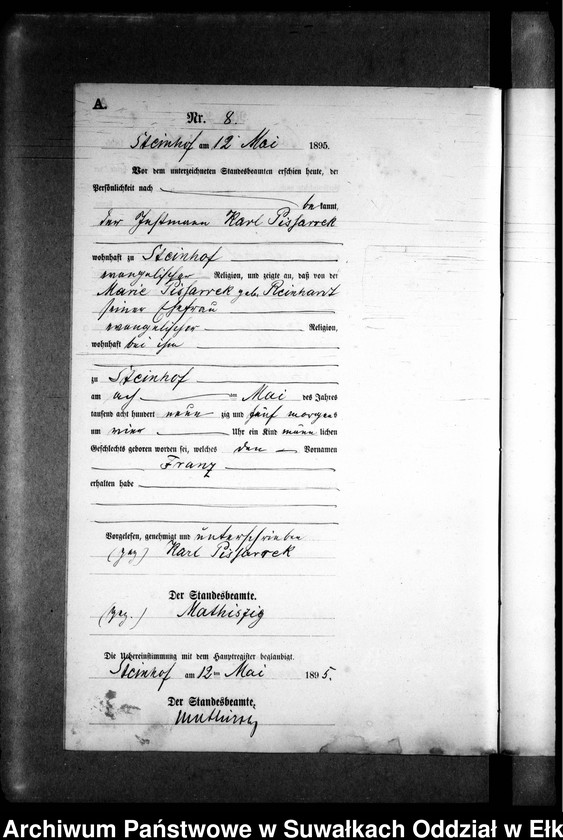 A.
Nr. 8.
Steinhof am 12 Mai 1895.
Vor dem unterzeichneten Standesbeamten erschien heute, der
Persönlichkeit nach
be kannt,
der Instmann Karl Pissarrek
wohnhaft zu Steinhof
evangelischer Religion, und zeigte an, daß von der
Marie Pissarrek geb. Reinhard
seiner Ehefrau
evangelischer Religion,
wohnhaft bei ihm
zu Steinhof
am acht ten Mai des Jahres
tausend acht hundert neun zig und fünf morgens
um vier Uhr ein Kind männ lichen
Geschlechts geboren worden sei, welches den Vornamen
Franz
erhalten habe
Vorgelesen, genehmigt und unterschrieben
(gez.) Karl Pissarrek
Der Standesbeamte.
(gez.) Mathiszig
Die Uebereinstimmung mit dem Hauptregister beglaubigt.
Steinhof am 12 ten Mai 1895.
Der Standesbeamte.
Mathiszig
Archiwum Państwowe w Suwałkach Oddział w Ełk